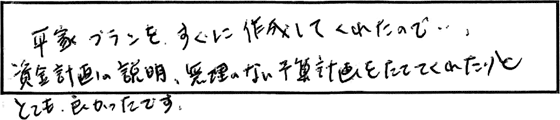 平家プランを、すぐに作成してくれたので‥、
資金計画の説明、無理のない予算計画をたててくれたりと
とても良かったです。